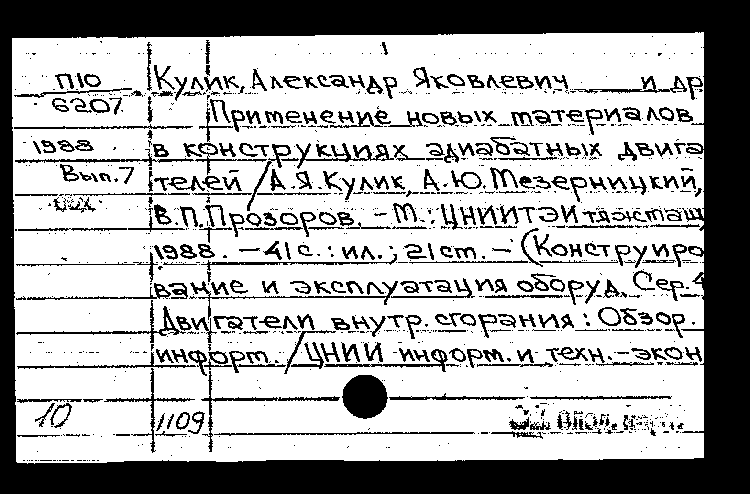 П10 Кулик, Александр Яковлевич и др
6207 Применение новых материалов
1988 в конструкциях адиабатных двига
Вып.7 телей / А.Я.Кулик, А.Ю.Мезерницкий,
В.П.Прозоров. – М.: ЦНИИТЭИтяжмаш,
1988. – 41 с. : ил.; 21 см. – (Конструиро
вание и эксплуатация оборуд. Сер.4
Двигатели внутр. сгорания : Обзор.
информ. / ЦНИИ информ. и техн.-экон
10 1109